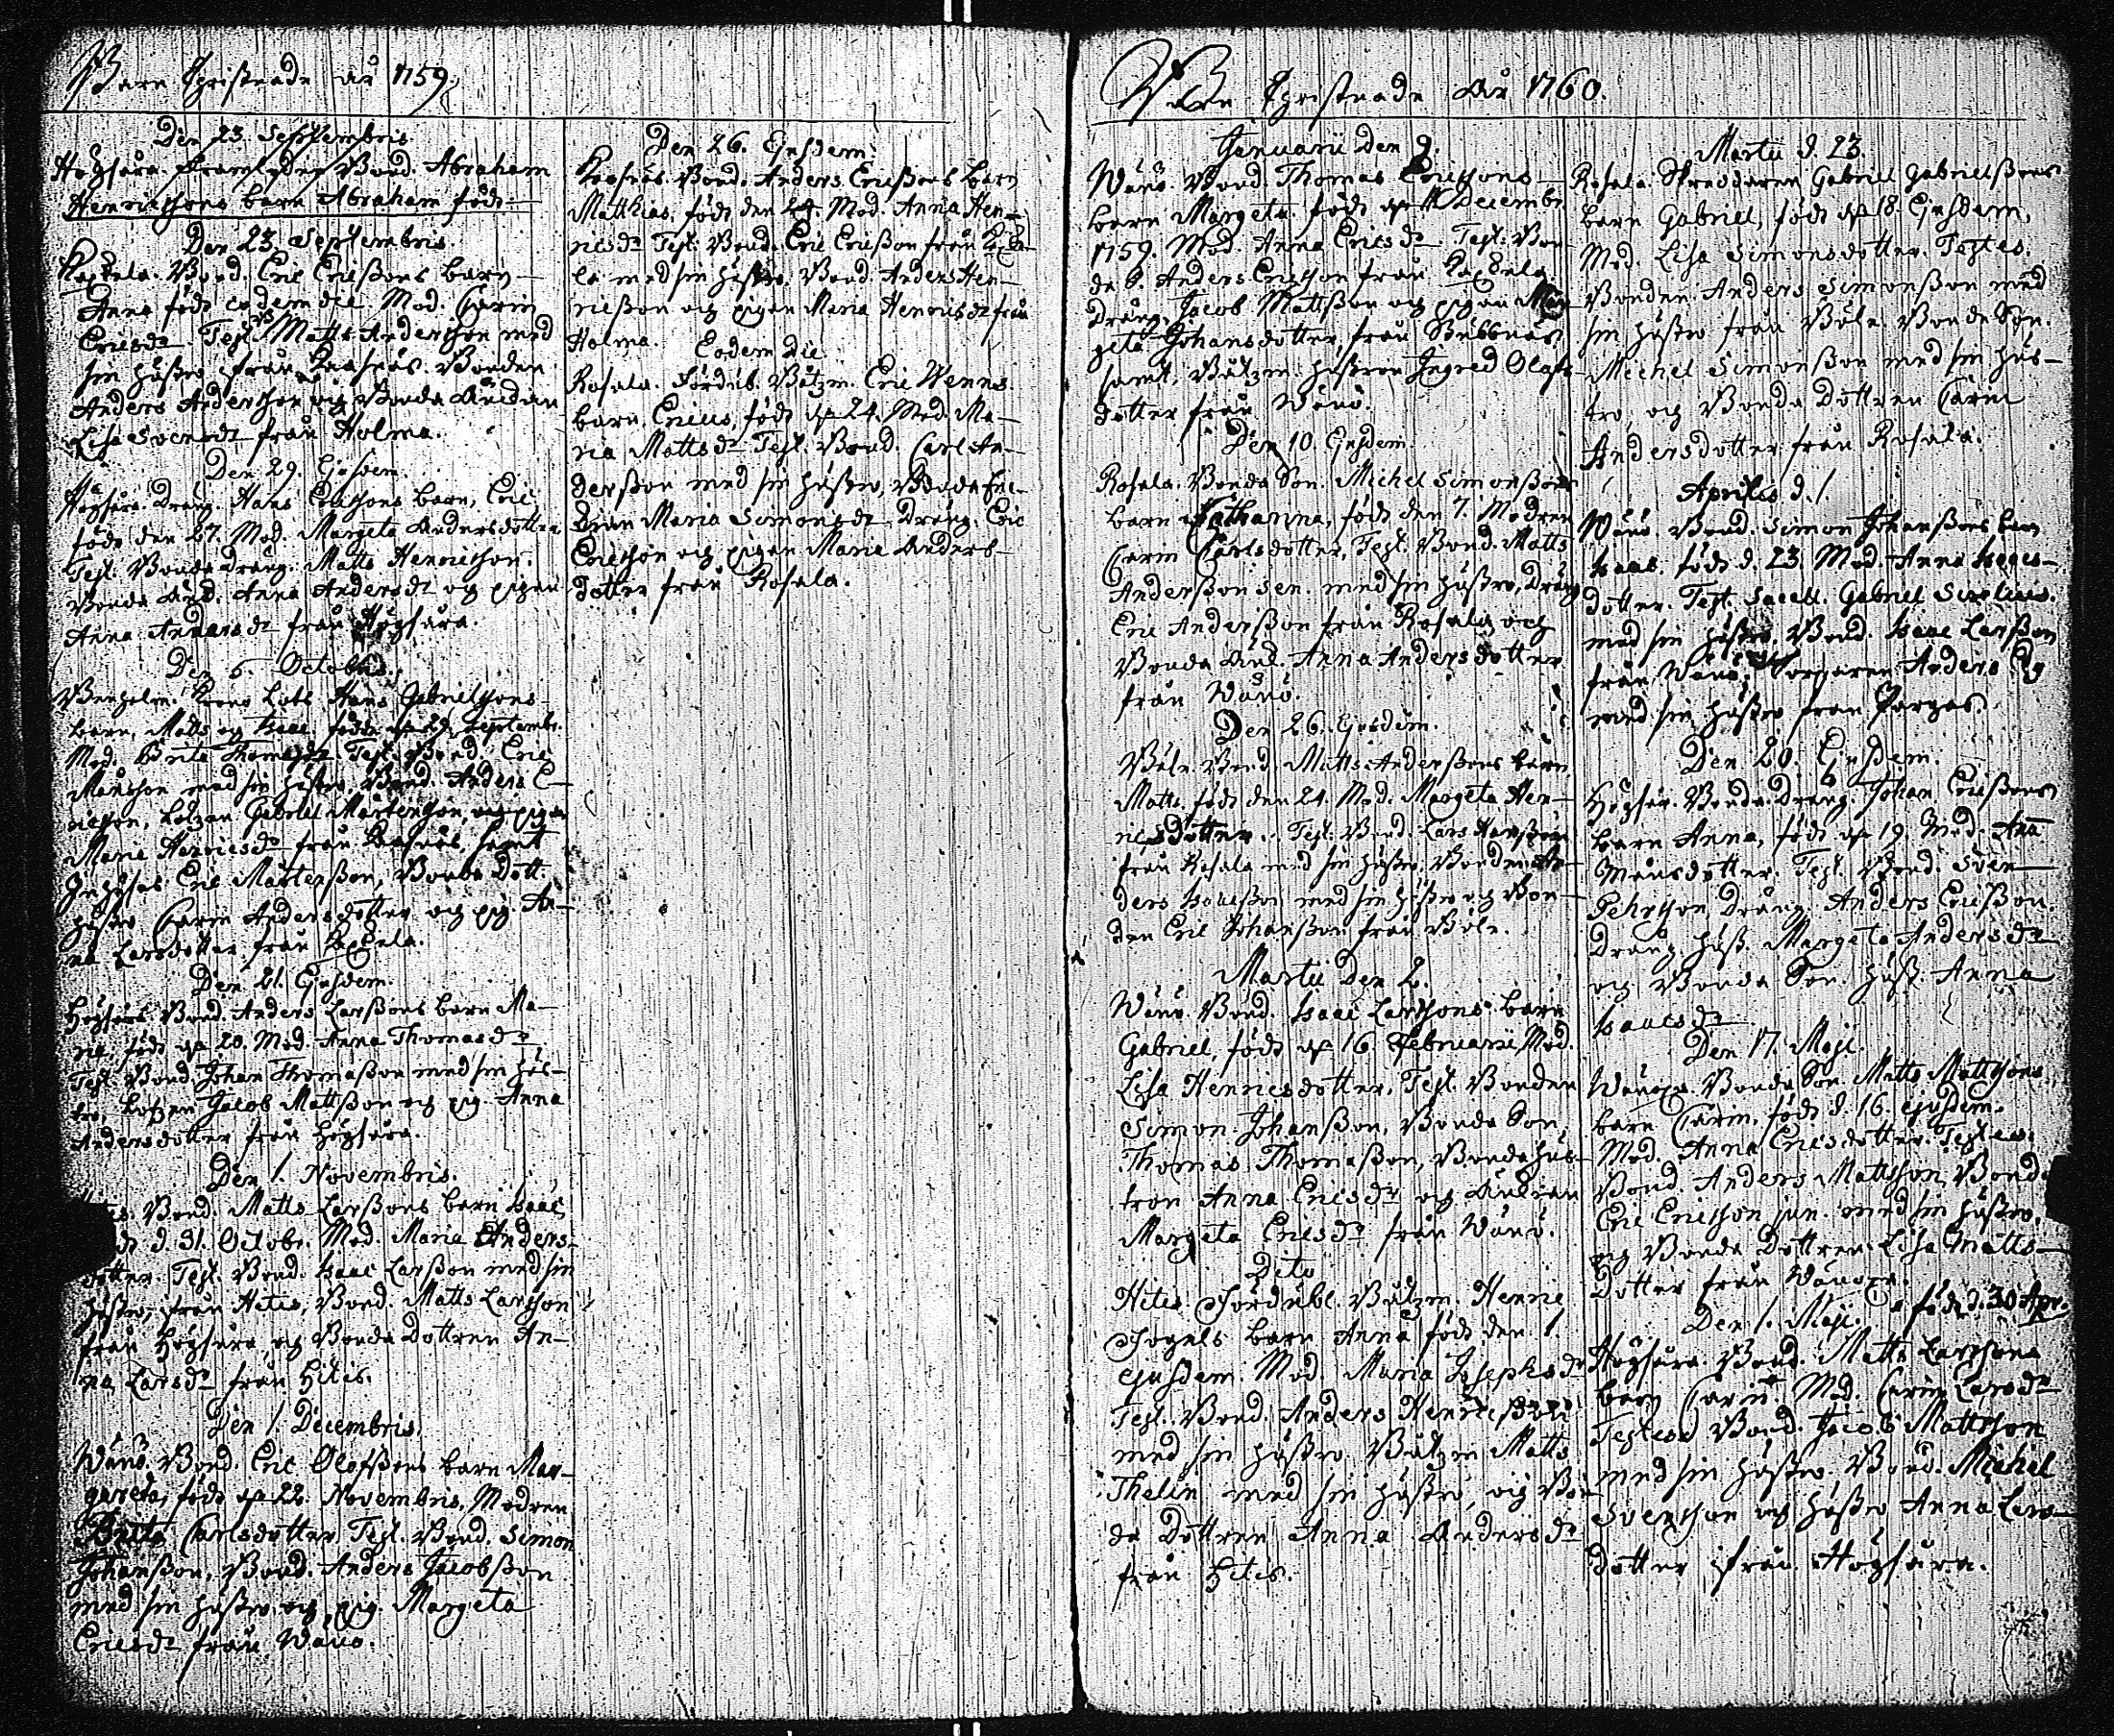 Barn Christnade år 1759.
Den 23 Septembris
Högsåra. Framledne Bond. Abraham
Henricssons barn Abraham född
Den 23. Septembris.
Kaxsela. Bond. Eric Erissons barn
Anna född eodem die. Mod. Carin
Ericsdr. Test. Matts Andersson med
sin hustro från Kasnäs. Bonden
Anders Andersson och Bonde Änckian
Lisa Svensdr från Holma.
Den 29. Ejusdem
Högsåra. Dräng. Hans Ericssons barn, Eric
född den 27. Mod. Margeta Andersdotter
Test. Bonda Dräng. Matts Henricsson.
Bonda Anna Andersdr och pigan
Anna Andersdr från Högsåra.
Den 5 Octobris.
Hans Gabrielssons
barn, Matts och Isaac, födde 29. Septembr.
Mod. Brita Thomasdr Test. Bond. Eric
Månsson med sin hustro, Bond. Anders E-
ricsson, Gabriel Mårtensson, och pigan
Maria Henricsdr från Kasnäs, samt
Inhyses Eric Mårtensson, Bonde Dott.
hustro Carin Andersdotter och pig. An-
na Larsdotter från Kaxsela.
Den 21. Ejusdem.
Högsåra Bond. Anders Larssons barn Ma-
ria, född 20. Mod. Anna Thomasdr
Test. Bond. Johan Thomasson med sin hus-
tro, Jacob Mattsson och pig. Anna
Andersdotter från Högsåra.
Den 1. Novembris.
Bond. Matts Larssons barn Isaac,
d. 31. Octobr. Mod. Maria Anders-
dotter. Test. Bond. Isaac Larsson med sin
hustro, från Hitis, Bond. Matts Larsson
från Högsåra, och Bonda Dottren An-
na Larsdr från Hitis.
Den 1. Decembris.
Wänö. Bond. Eric Olofssons barn Mar-
gareta, född 22. Novembris, Modren
Brita Carlsdotter. Test. Bond. Simon
Johansson, Bond. Anders Jacobsson
med sin hustro, och pig. Margeta
Ericsdr från Wänö.
Den 26. Ejusdem.
Kasnäs. Bond. Anders Ericssons barn
Matthias, född den 24. Mod. Anna Hen-
ricsdr Test. Bond. Eric Ericsson från Kaxse-
la med sin hustro. Bond. Anders Hen-
ricsson och pigan Maria Henricsdr från
Holma.
Eodem Die
Rosala. Fördub. Båtzm. Eric Wenns
barn, Ericus, född 24. Mod. Ma-
ria Mattsdr Test. Bond. Carl An-
dersson med sin hustro, Bonda Enc-
kian Maria Simonsdr Dräng. Eric
Ericsson och pigan Maria Anders-
dotter från Rosala.
Barn Christnade År 1760.
Januarii den 9.
Wänö. Bond. Thomas Ericssons
barn Margeta. född Decembr.
1759. Mod. Anna Ericsdr Test: Bon-
de S. Anders Ericsson från Kaxsela.
Dräng. Jacob Mattsson och pigan Mar-
geta Johansdotter, från
samt, Båtzm. hustron Ingred Olofs-
dotter från Wänö.
Den 10. Ejusdem.
Rosala. Bonda Son. Michel Simonssons
barn Catharina, född den 7. Modren
Carin Carlsdotter, Test. Bond. Matts
Andersson sen. med sin hustro, Dräng
Eric Andersson från Rosala, och
Bonda Anna Andersdotter
från Wänö.
Den 26. Ejusdem.
Böle. Bond. Matts Anderssons barn,
Matts, född den 24. Mod. Margeta Hen-
ricsdotter. Test. Bond. Lars Hansson
från Rosala med sin hustro, Bonden An-
ders Isacsson med sin hustro och Bon-
den Eric Johansson från Böle.
Martii Den 2.
Wänö. Bond. Isaac Larssons barn
Gabriel, född 16. Februarii, Mod.
Lisa Henricsdotter, Test. Bonden
Simon Johansson, Bonda Son.
Thomas Thomasson, Bonda hus-
tron Anna Ericsdr och Änckian
Margeta Ericsdr från Wänö.
Dito
Hitis. Fördubl. Båtzm. Henric
Fogels barn Anna född den 1.
ejusdem. Mod. Maria Josephsdr
Test. Bond. Anders Henricsson
med sin hustro Båtzm Matts
Thelin med sin hustro, och Bon-
da Dottren Anna Andersdr
från Hitis.
Martii d. 23.
Rosala. Skreddaren Gabriel Gabrielssons
barn Gabriel, född 18. Ejusdem.
Mod. Lisa Simonsdotter. Testes.
Bonden Anders Simonsson med
sin hustro från Böle. Bonde Son.
Michel Simonsson med sin hus-
tro, och Bonda Dottren Carin
Andersdotter från Rosala.
Aprilis d. 1.
Wänö. Bond. Simon Johanssons barn
Isaac. född d. 23. Mod. Anna Isaacs-
dotter. Test. Sacell. Gabriel Sirelius.
med sin hustro. Bond. Isaac Larsson
från Wänö. Torparen Anders
med sin hustro från Pargas.
Den 20. Ejusdem.
Högsår. Bonde Dräng. Johan Ericssons
barn Anna, född 19. Mod. Anna
Månsdotter. Test. Bond. Sven
Pehrsson Dräng. Anders Ericsson.
Dräng. hust. Margeta Andersdr
och Bonda Son. hust. Anna
Isaacsdr
Den 17. Maji.
Wänoxa Bonda Son. Matts Mattssons
barn Carin, född d. 16. ejusdem.
Mod. Anna Ericsdotter. Testes.
Bond. Anders Mattsson, Bond.
Eric Ericsson jun. med sin hustro,
och Bonda Dottren Lisa Matts-
dotter från Wänoxa.
Den 1. Maji. född d. 30 Apr.
Högsåra. Bond. Matts Larssons
barn Carin. Mod. Carin Larsdr
Testes Bond. Jacob Mattsson
med sin hustro. Bond. Michel
Svensson och hustro Anna Lars-
dotter, från Högsåra.